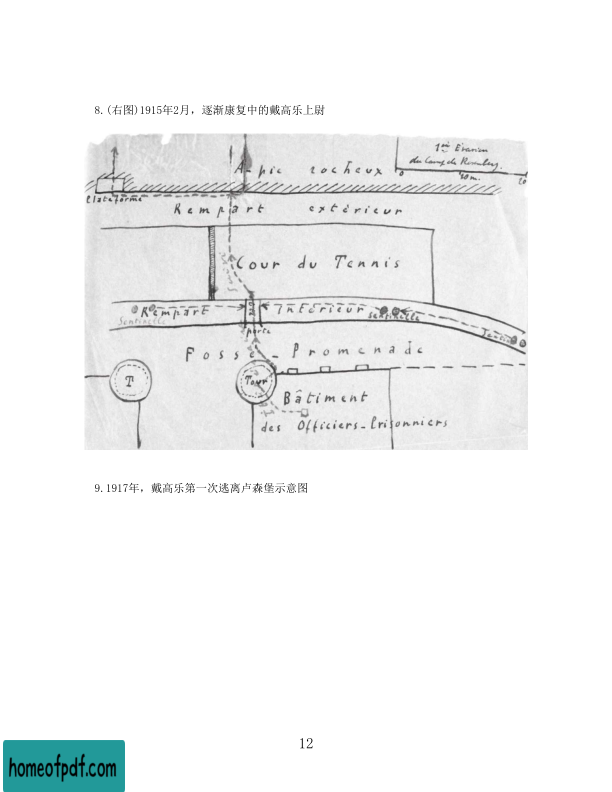 8.(右图)1915年2月，逐渐康复中的戴高乐上尉
1ère Evasion
du Camp de Rosenberg.
0 10m. 20
A-pic rocheux
Plateforme
Rempart extérieur
Cour du Tennis
Rempart Intérieur
Sentinelle
Sentinelle
porte
Fossé - Promenade
T
Tour
Bâtiment
des Officiers-Prisonniers
9.1917年，戴高乐第一次逃离卢森堡示意图
12
homeofpdf.com